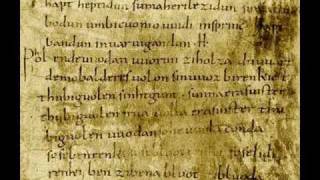 hapt heptidun sumaherilezidun suma
bodun umbicuonio uuidi insprinc
bandun inuar uigandun. H.
Phol endeuuodan uuorun ziholza du uuart
demobalderes uolon sinuuoz birenkict
thubiguolen sinhtgunt . sunnaerasuister
thubiguolen friia uolla erasuister thu
biguolen uuodan conda
sosebenrenki soselidi
renki ben zibena bluot zibluoda